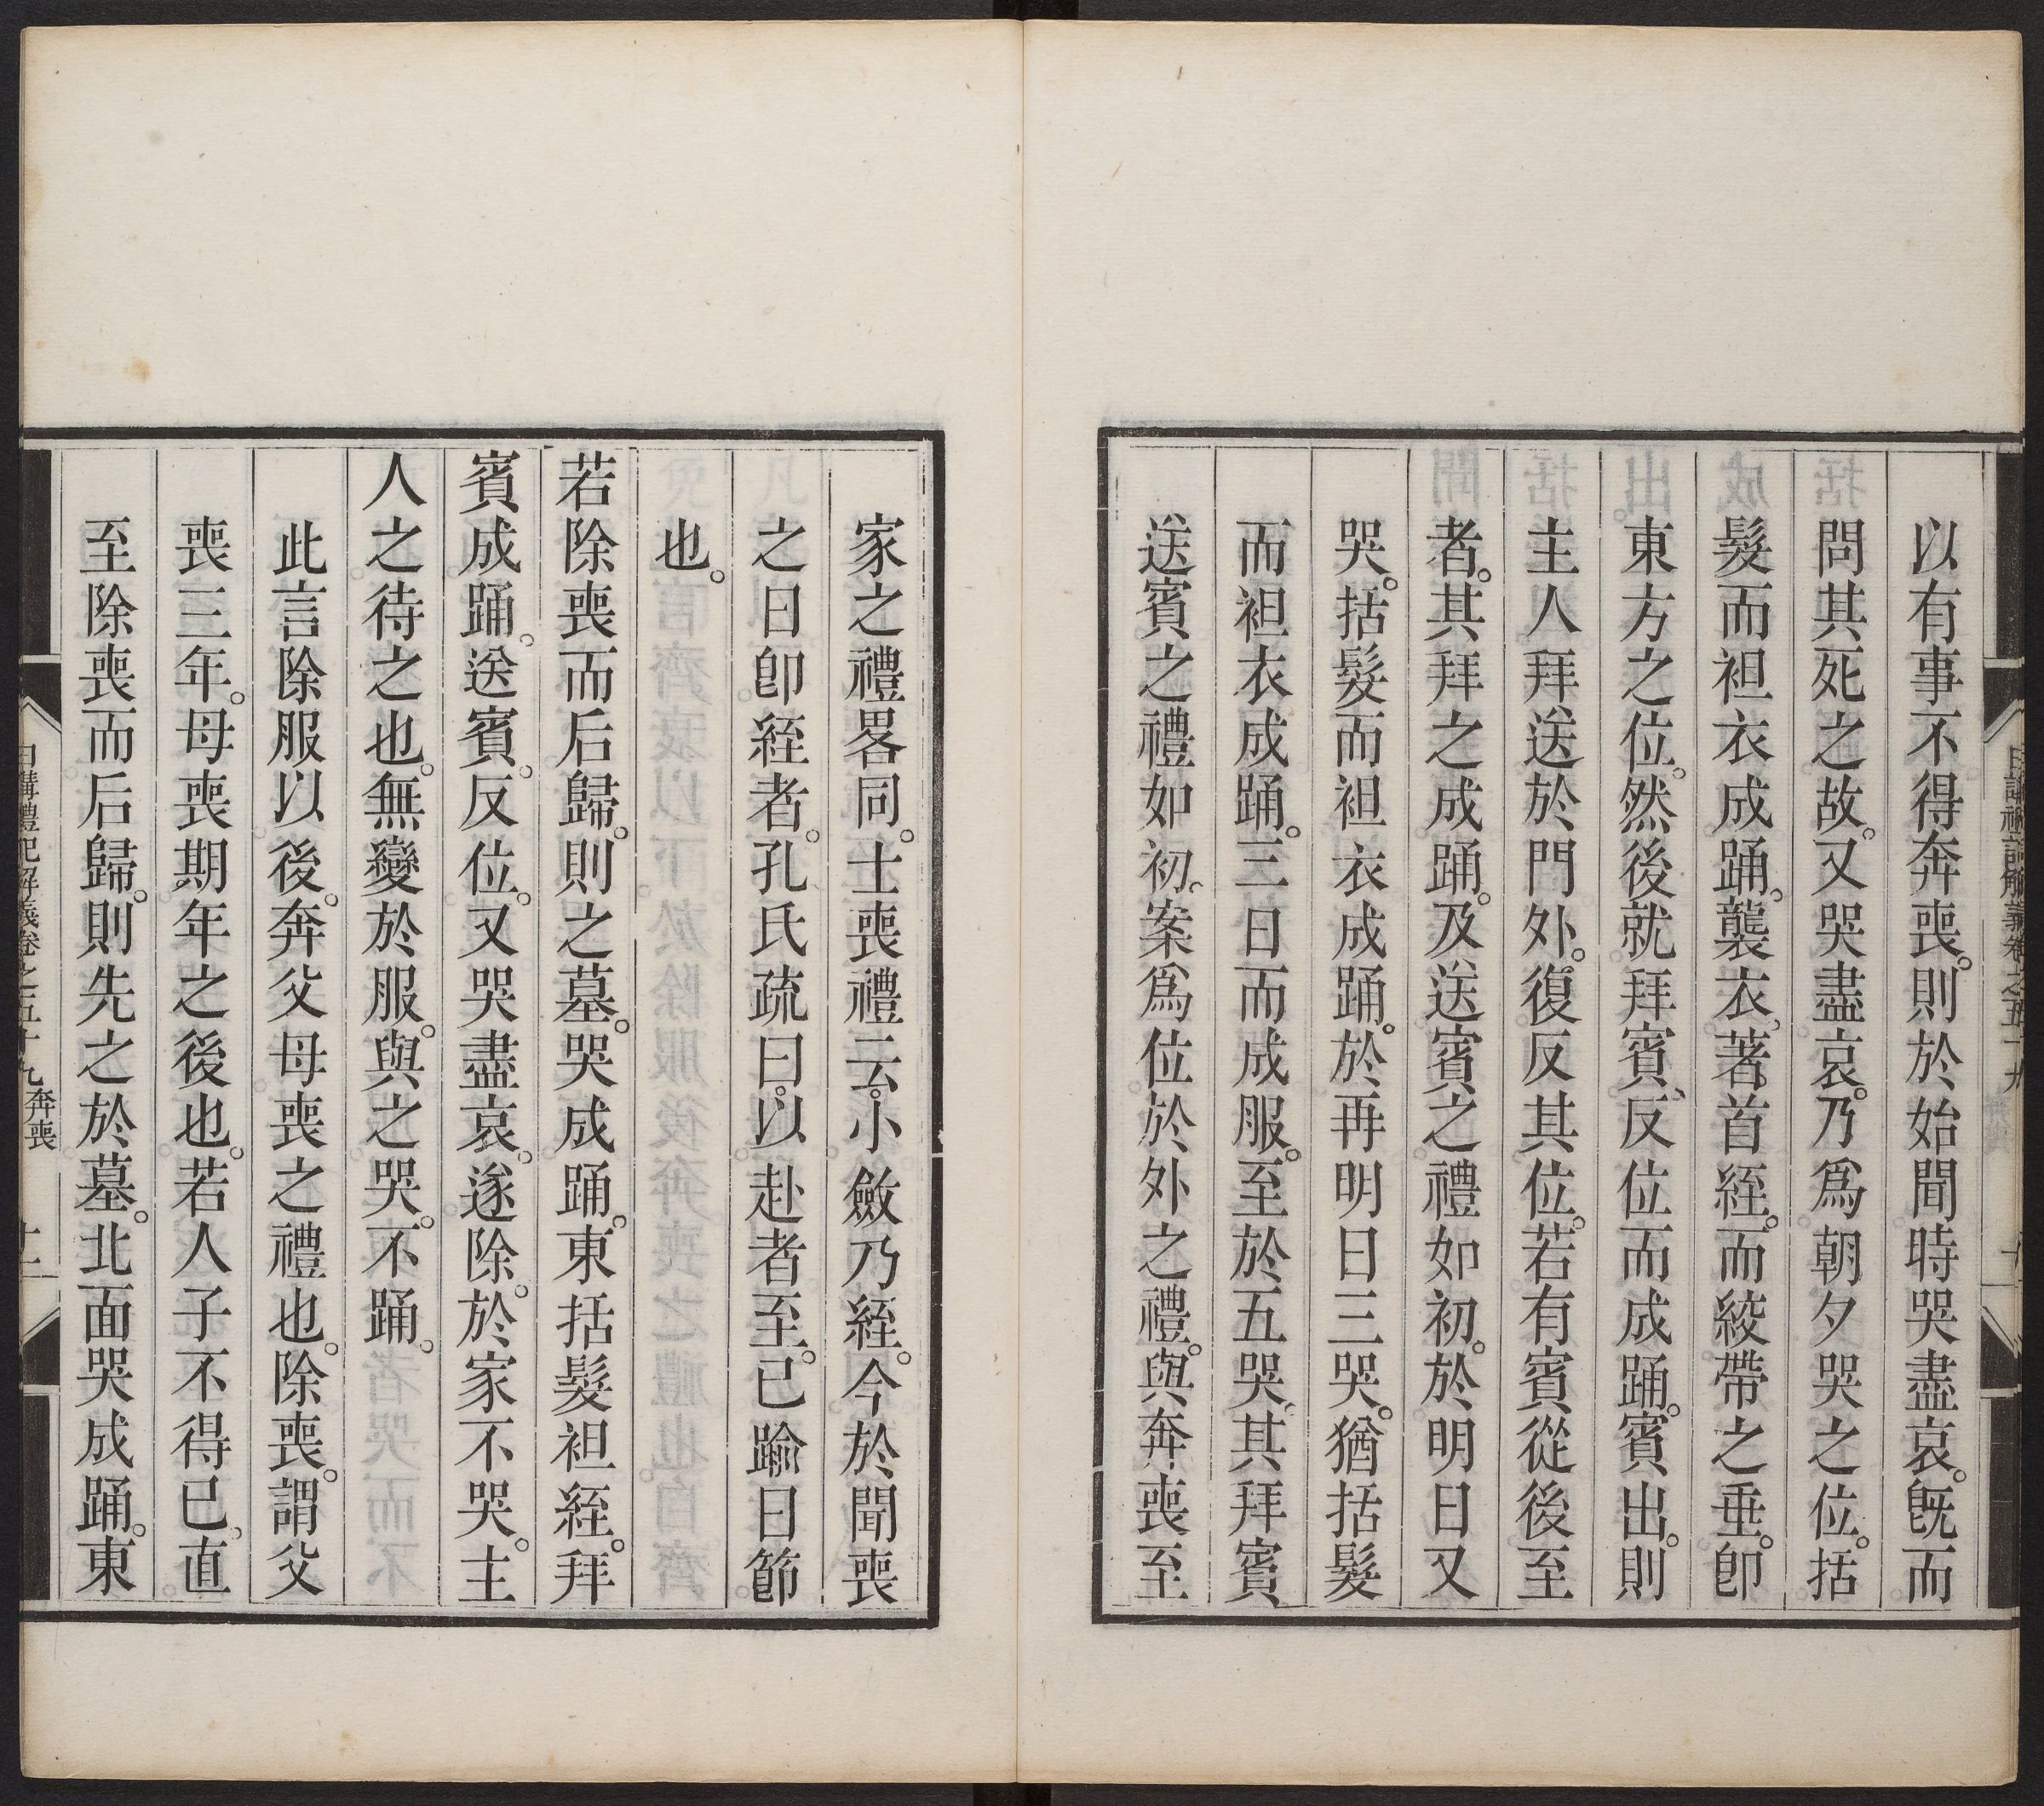 以有事不得奔喪。則於始聞時哭盡哀。旣而
問其死之故。又哭盡哀。乃爲朝夕哭之位。括
髮而袒衣成踊。襲衣。著首絰。而絞帶之垂。卽
東方之位。然後就拜賓、反位而成踊。賓出。則
主人拜送於門外。復反其位。若有賓從後至
者。其拜之成踊。及送賓之禮如初。於明日又
哭。括髮而袒衣成踊。於再明日三哭。猶括髮
而袒衣成踊。三日而成服。至於五哭。其拜賓
送賓之禮如初。案爲位於外之禮。與奔喪至
家之禮畧同。士喪禮云。小斂乃絰。今於聞喪
之日卽絰者。孔氏疏曰。以赴者至。已踰日節
也。
若除喪而后歸。則之墓。哭成踊。東括髮袒絰。拜
賓成踊。送賓。反位。又哭盡哀。遂除。於家不哭。主
人之待之也。無變於服。與之哭。不踊。
此言除服以後。奔父母喪之禮也。除喪。謂父
喪三年。母喪期年之後也。若人子不得已。直
至除喪而后歸。則先之於墓。北面哭成踊。東
日講禮記解義卷之五十九 奔喪 十二